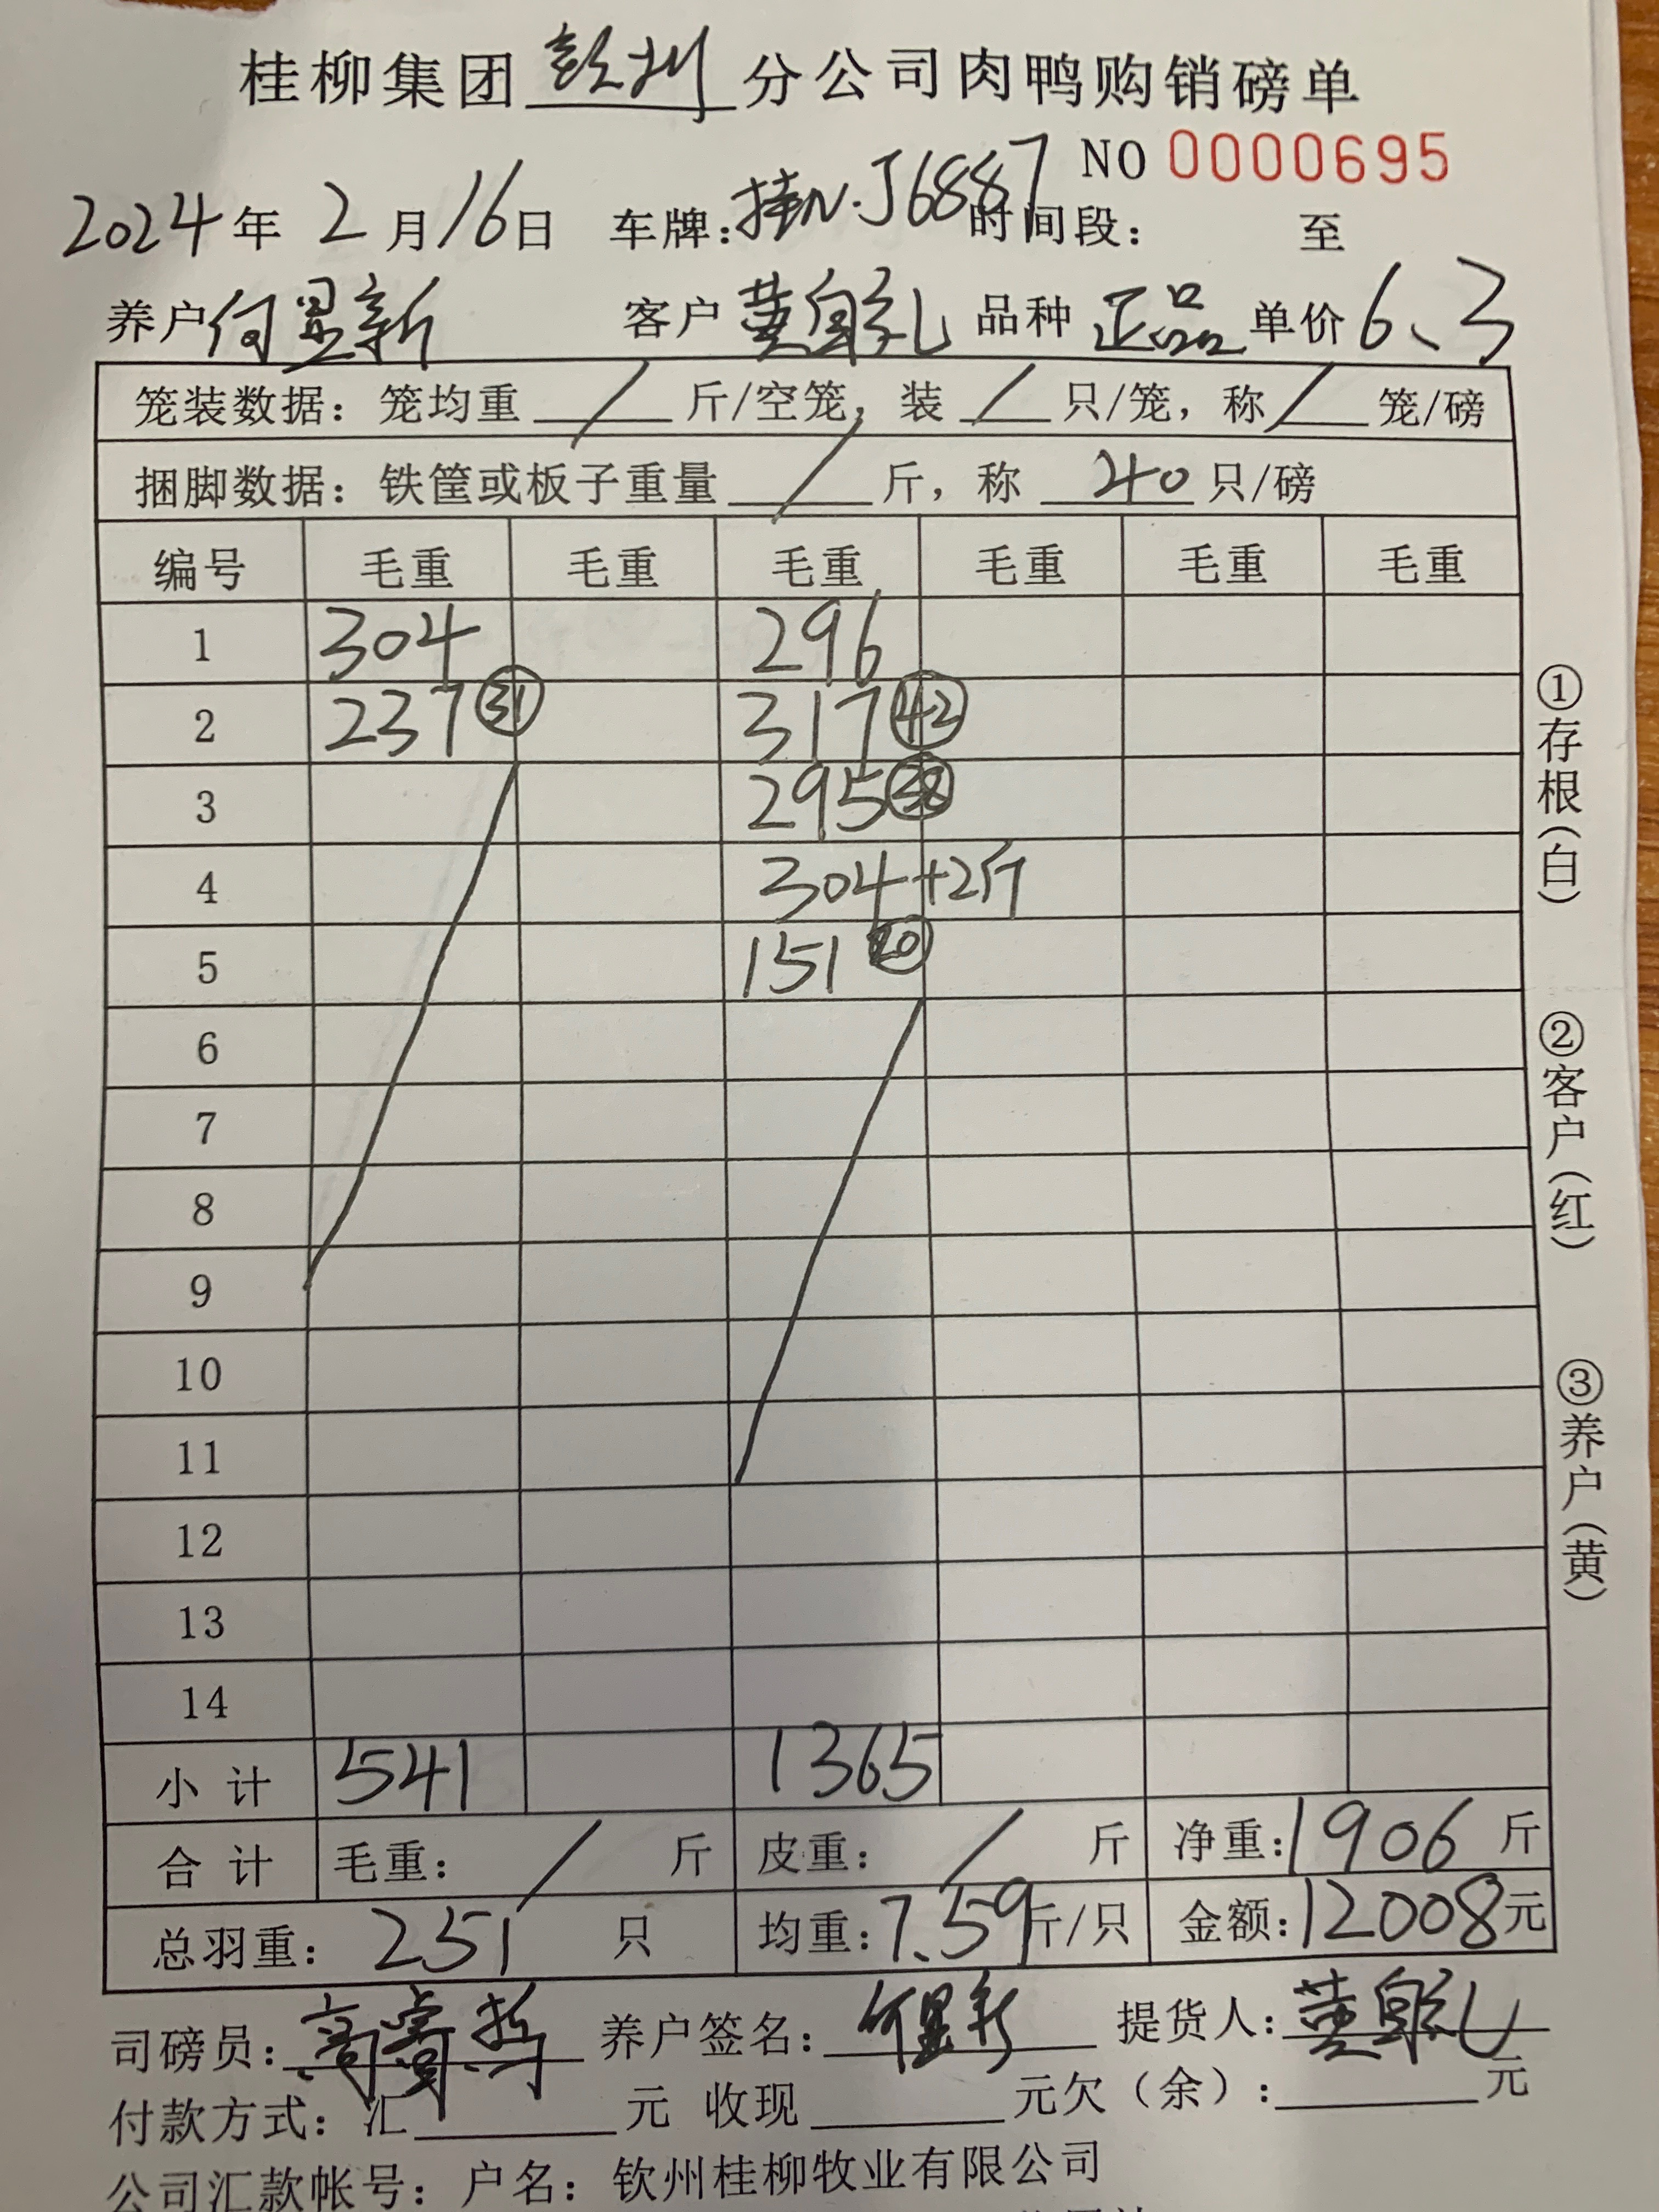 桂柳集团 分公司肉鸭购销磅单
NO 0000695
2024年 2月16日 车牌:桂N·J6887 时间段: 至
养户何显新 客户黄自礼 品种 正品 单价6、3
笼装数据: 笼均重 / 斤/空笼, 装 / 只/笼, 称 / 笼/磅
捆脚数据: 铁筐或板子重量 / 斤, 称 40 只/磅
编号 毛重 毛重 毛重 毛重 毛重 毛重
1 304 296
2 237 ㉛ 317 ㊷
3 295 ㊳
4 304+2斤
5 151 ⑳
6
7
8
9
10
11
12
13
14
小计 541 1365
合计 毛重: / 斤 皮重: / 斤 净重: 1906 斤
总羽重: 251 只 均重: 7.59斤/只 金额: 12008元
司磅员: 养户签名: 何显新 提货人: 黄自礼
付款方式: 汇 元 收现 元欠(余): 元
公司汇款帐号: 户名: 钦州桂柳牧业有限公司
①存根(白)
②客户(红)
③养户(黄)